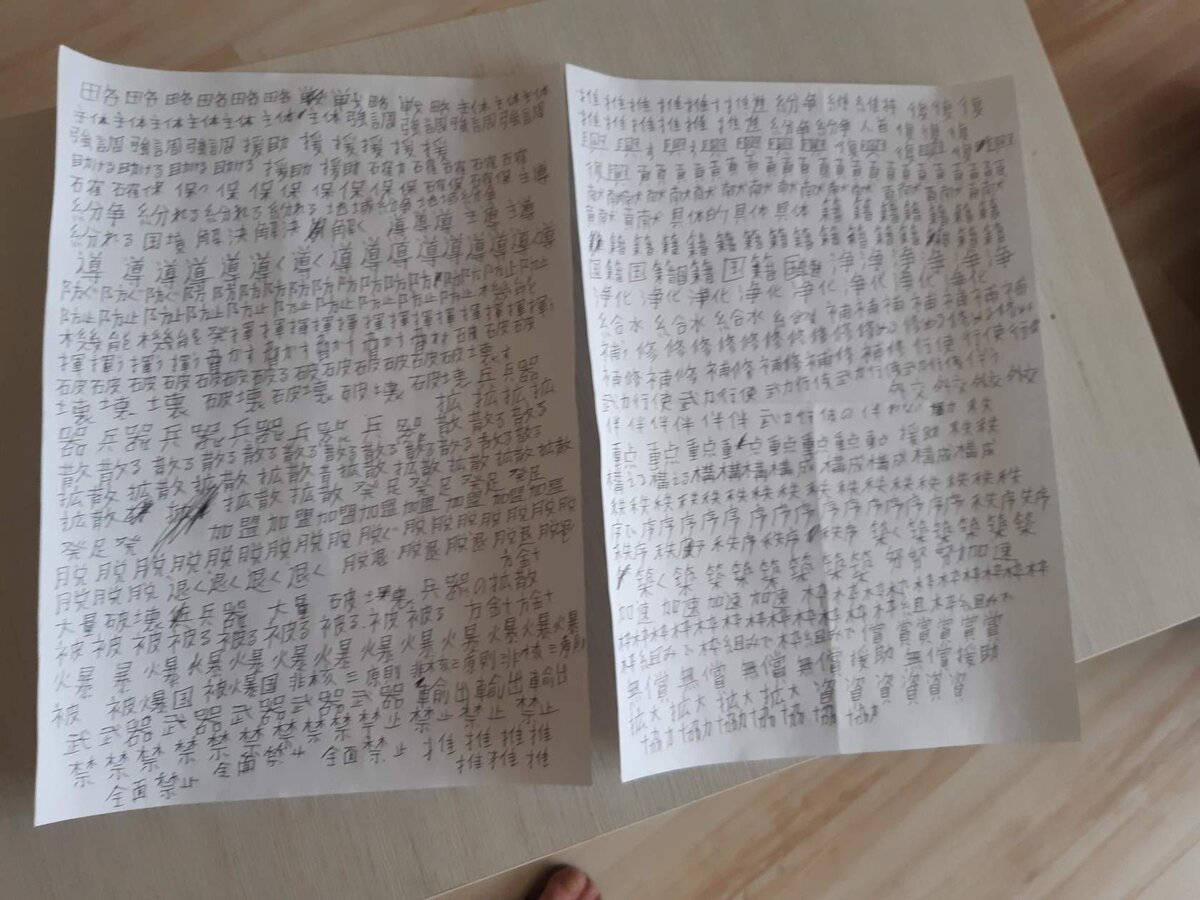 略 略 略 略 略 略 戦 戦 略 戦 略 主体 主体 主体
主体 主体 主体 主体 主体 主体 主体 強調 強調 強調 強調
強調 強調 強調 援助 援 援 援 援 援
助ける 助ける 助ける 助ける 援助 援助 確 確 確 確 確
確 確保 保つ 保 保 保 保 保 保 保 確保 確保 確保 主導
紛争 紛れる 紛れる 紛れる 地域 紛争 地域 紛争
紛れる 国境 解決 解決 解く 導 導 導 主導 主導
導 導 導 導 導く 導く 導 導 導 導 導 導 導 導
防ぐ 防ぐ 防ぐ 防 防 防 防 防 防止 防止 防止
防止 防止 防止 防止 防止 防止 防止 防止 機能
機能 機能 発揮 揮 揮 揮 揮 揮 揮 揮 揮 揮 揮
破 破 破 破 破 破る 破る 破る 破 破 破壊
壊 壊 壊 破壊 破壊 破壊 破壊 兵 兵器
器 兵器 兵器 兵器 兵器 兵器 拡 拡 拡 拡
散 散る 散る 散る 散る 散る 散る 散る 散る
拡散 拡散 拡散 拡散 拡散 拡散 拡散 拡散
拡散 拡散 拡散 発足 発足 発足 発足
発足 発 加盟 加盟 加盟 加盟 加盟 加盟
脱 脱 脱 脱 脱 脱 脱 脱 脱ぐ 脱 脱 脱 脱 脱 脱
脱 脱 脱 退く 退く 退く 退く 脱退 脱退 脱退 脱退
大量 破壊 兵器 大量 破壊 兵器の拡散 方針
被 被 被 被る 被る 被る 被る 被る 方針 方針
爆 爆 爆 爆 爆 爆 爆 爆 爆 爆 爆 爆
被 被爆国 被爆国 非核三原則 非核三原則
武 武器 武器 武器 武器 武器 輸出 輸出 輸出
禁 禁 禁 禁 禁 禁 禁 禁止 禁止 禁止 禁止
全面禁止 全面禁止 全面禁止 推 推 推 推
推 推 推
推 推 推 推 推 推進 紛争 維 維持 復 復 復
推 推 推 推 推 推進 紛争 紛争 復 復 復
興 興 興 興 興 復興 復興 復興
復興 貢 貢 貢 貢 貢 貢 貢 貢 貢 貢 貢 貢
献 献 献 献 献 献 献 貢献 貢献
貢献 貢献 具体的 具体 具体 籍 籍 籍 籍 籍 籍 籍
籍 籍 籍 籍 籍 籍 籍 籍 籍 籍 籍 籍 籍
国籍 国籍 国籍 国籍 国籍 浄 浄 浄 浄 浄 浄
浄化 浄化 浄化 浄化 浄化 浄化 浄化 浄化
給水 給水 給水 給水 補 補 補 補 補 補 補
補う 修 修 修 修 修 修 修 修 修 修める 修める 修める 修める
補修 補修 補修 補修 補修 行使 行使 行使
武力行使 武力行使 武力行使 武力行使 伴う
伴 伴 伴 伴 伴 武力行使の伴わない 外交 外交 外交 外交
重点 重点 重点 重点 重点 重点 援助 秩 秩 秩
構える 構える 構 構 構 構成 構成 構成 構成 構成
秩 秩 秩 秩 秩 秩 秩 秩 秩 秩 秩 秩
序 序 序 序 序 序 序 序 序 序 序 序 秩序
秩序 秩序 秩序 秩序 秩序 築く 築 築 築 築 築
築く 築 築 築 築 築 築 努 努 努 加速
加速 加速 加速 加速 枠 枠 枠 枠 枠 枠 枠 枠 枠
枠 枠 枠 枠 枠 枠 枠 枠 枠 枠組 枠組みで
枠組みで 枠組みで 枠組みで 償 償 償 償 償 償
無償 無償 無償 援助 無償 援助
拡大 拡大 拡大 資 資 資 資 資 資
協力 協力 協力 協力 協力